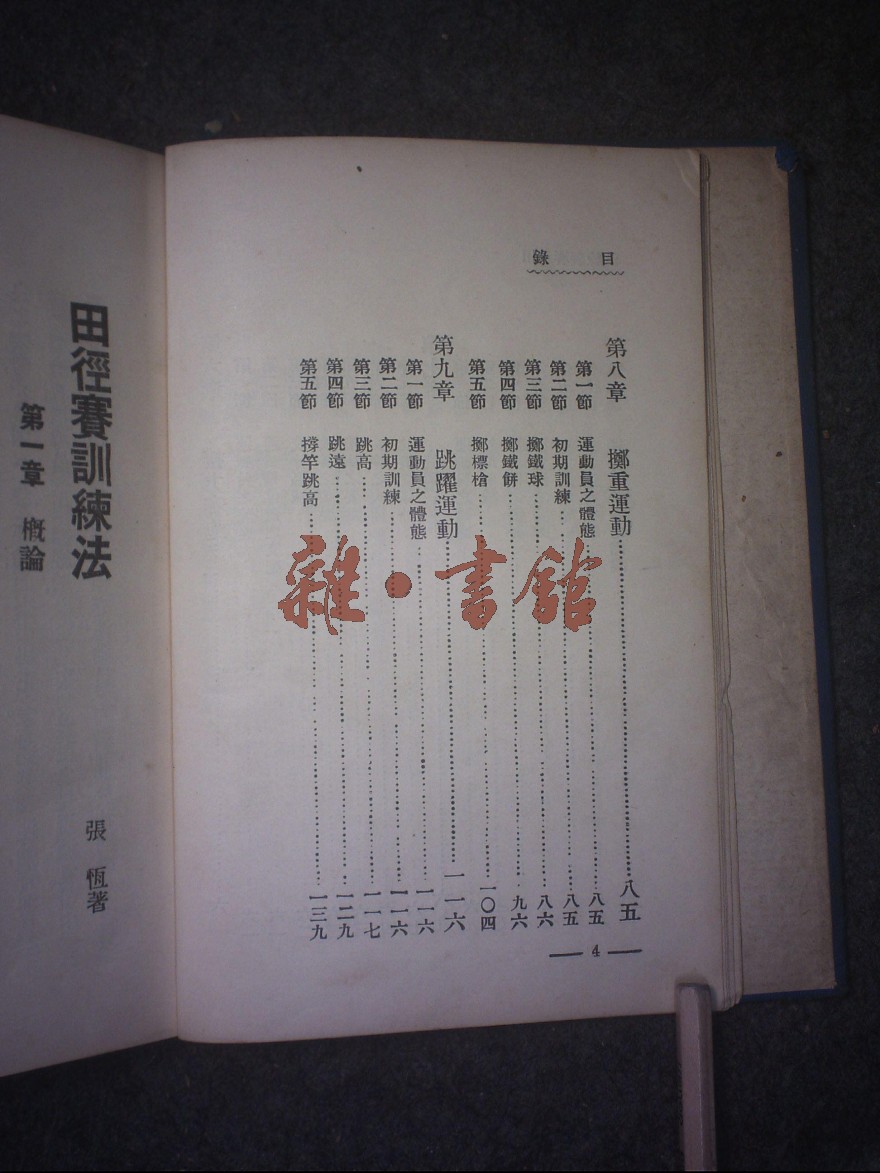 目錄
第八章 擲重運動 八五
第一節 運動員之體態 八五
第二節 初期訓練 八五
第三節 擲鐵球 八六
第四節 擲鐵餅 九六
第五節 擲標槍 一〇四
第九章 跳躍運動 一一六
第一節 運動員之體態 一一六
第二節 初期訓練 一一六
第三節 跳高 一一七
第四節 跳遠 一二九
第五節 撐竿跳高 一三九
4
田徑賽訓練法
張恆著
第一章 概論
雜·書館